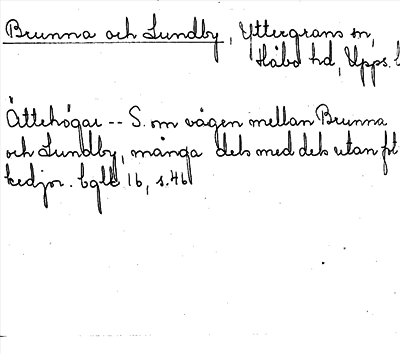 Brunna och Lundby, Yttergrans sn,
Håbo hd, Upps. l
Ättehögar -- S. om vägen mellan Brunna
och Lundby, många dels med dels utan fot
kedjor. bglb 16, s. 46